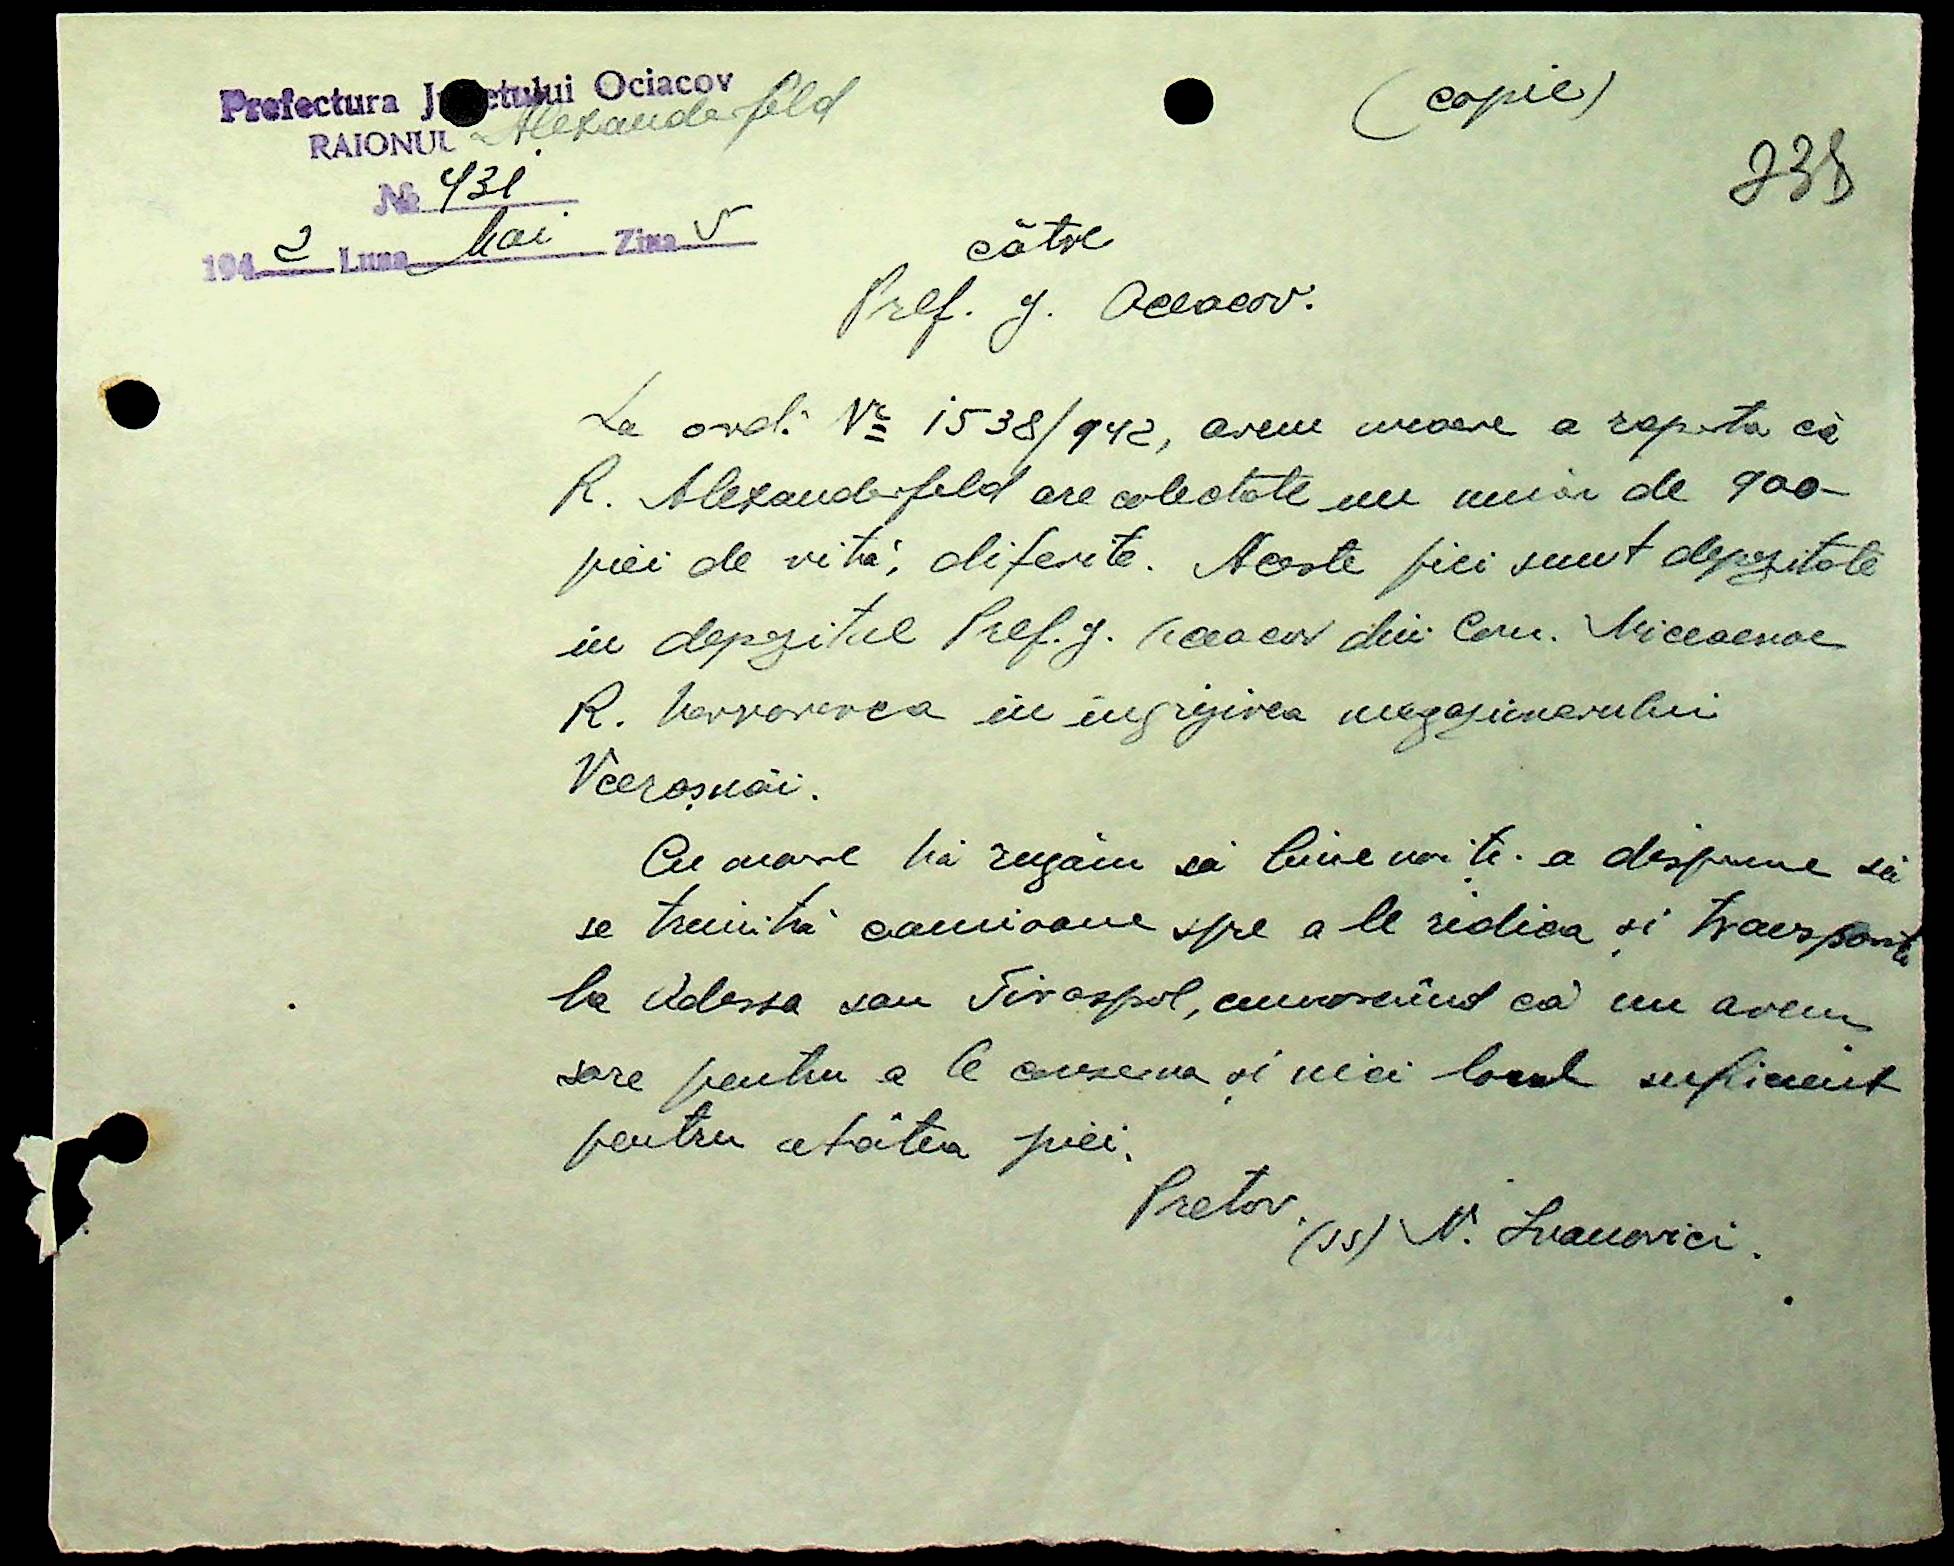 Prefectura Județului Ociacov
(copie)
RAIONUL Alexanderfeld
№ 431
238
1942 Luna Mai Ziua 5
către
Pref. j. Oceacov.
La ord. Nr 1538/942, avem onoare a raporta că
R. Alexanderfeld are colectate un număr de 900
piei de vită, diferite. Aceste piei sunt depozitate
in depozitul Pref. j. Oceacov din Com.
R. Varvarovca in ingrijirea magazionerului
Cu onoare Vă rugăm să binevoiți a dispune să
se trimită camioane spre a le ridica și transporta
la Odessa sau Tiraspol, cunoscând că nu avem
sare pentru a le conserva și nici local suficient
pentru atâtea piei.
Pretor,
(ss) N. Ivanovici.